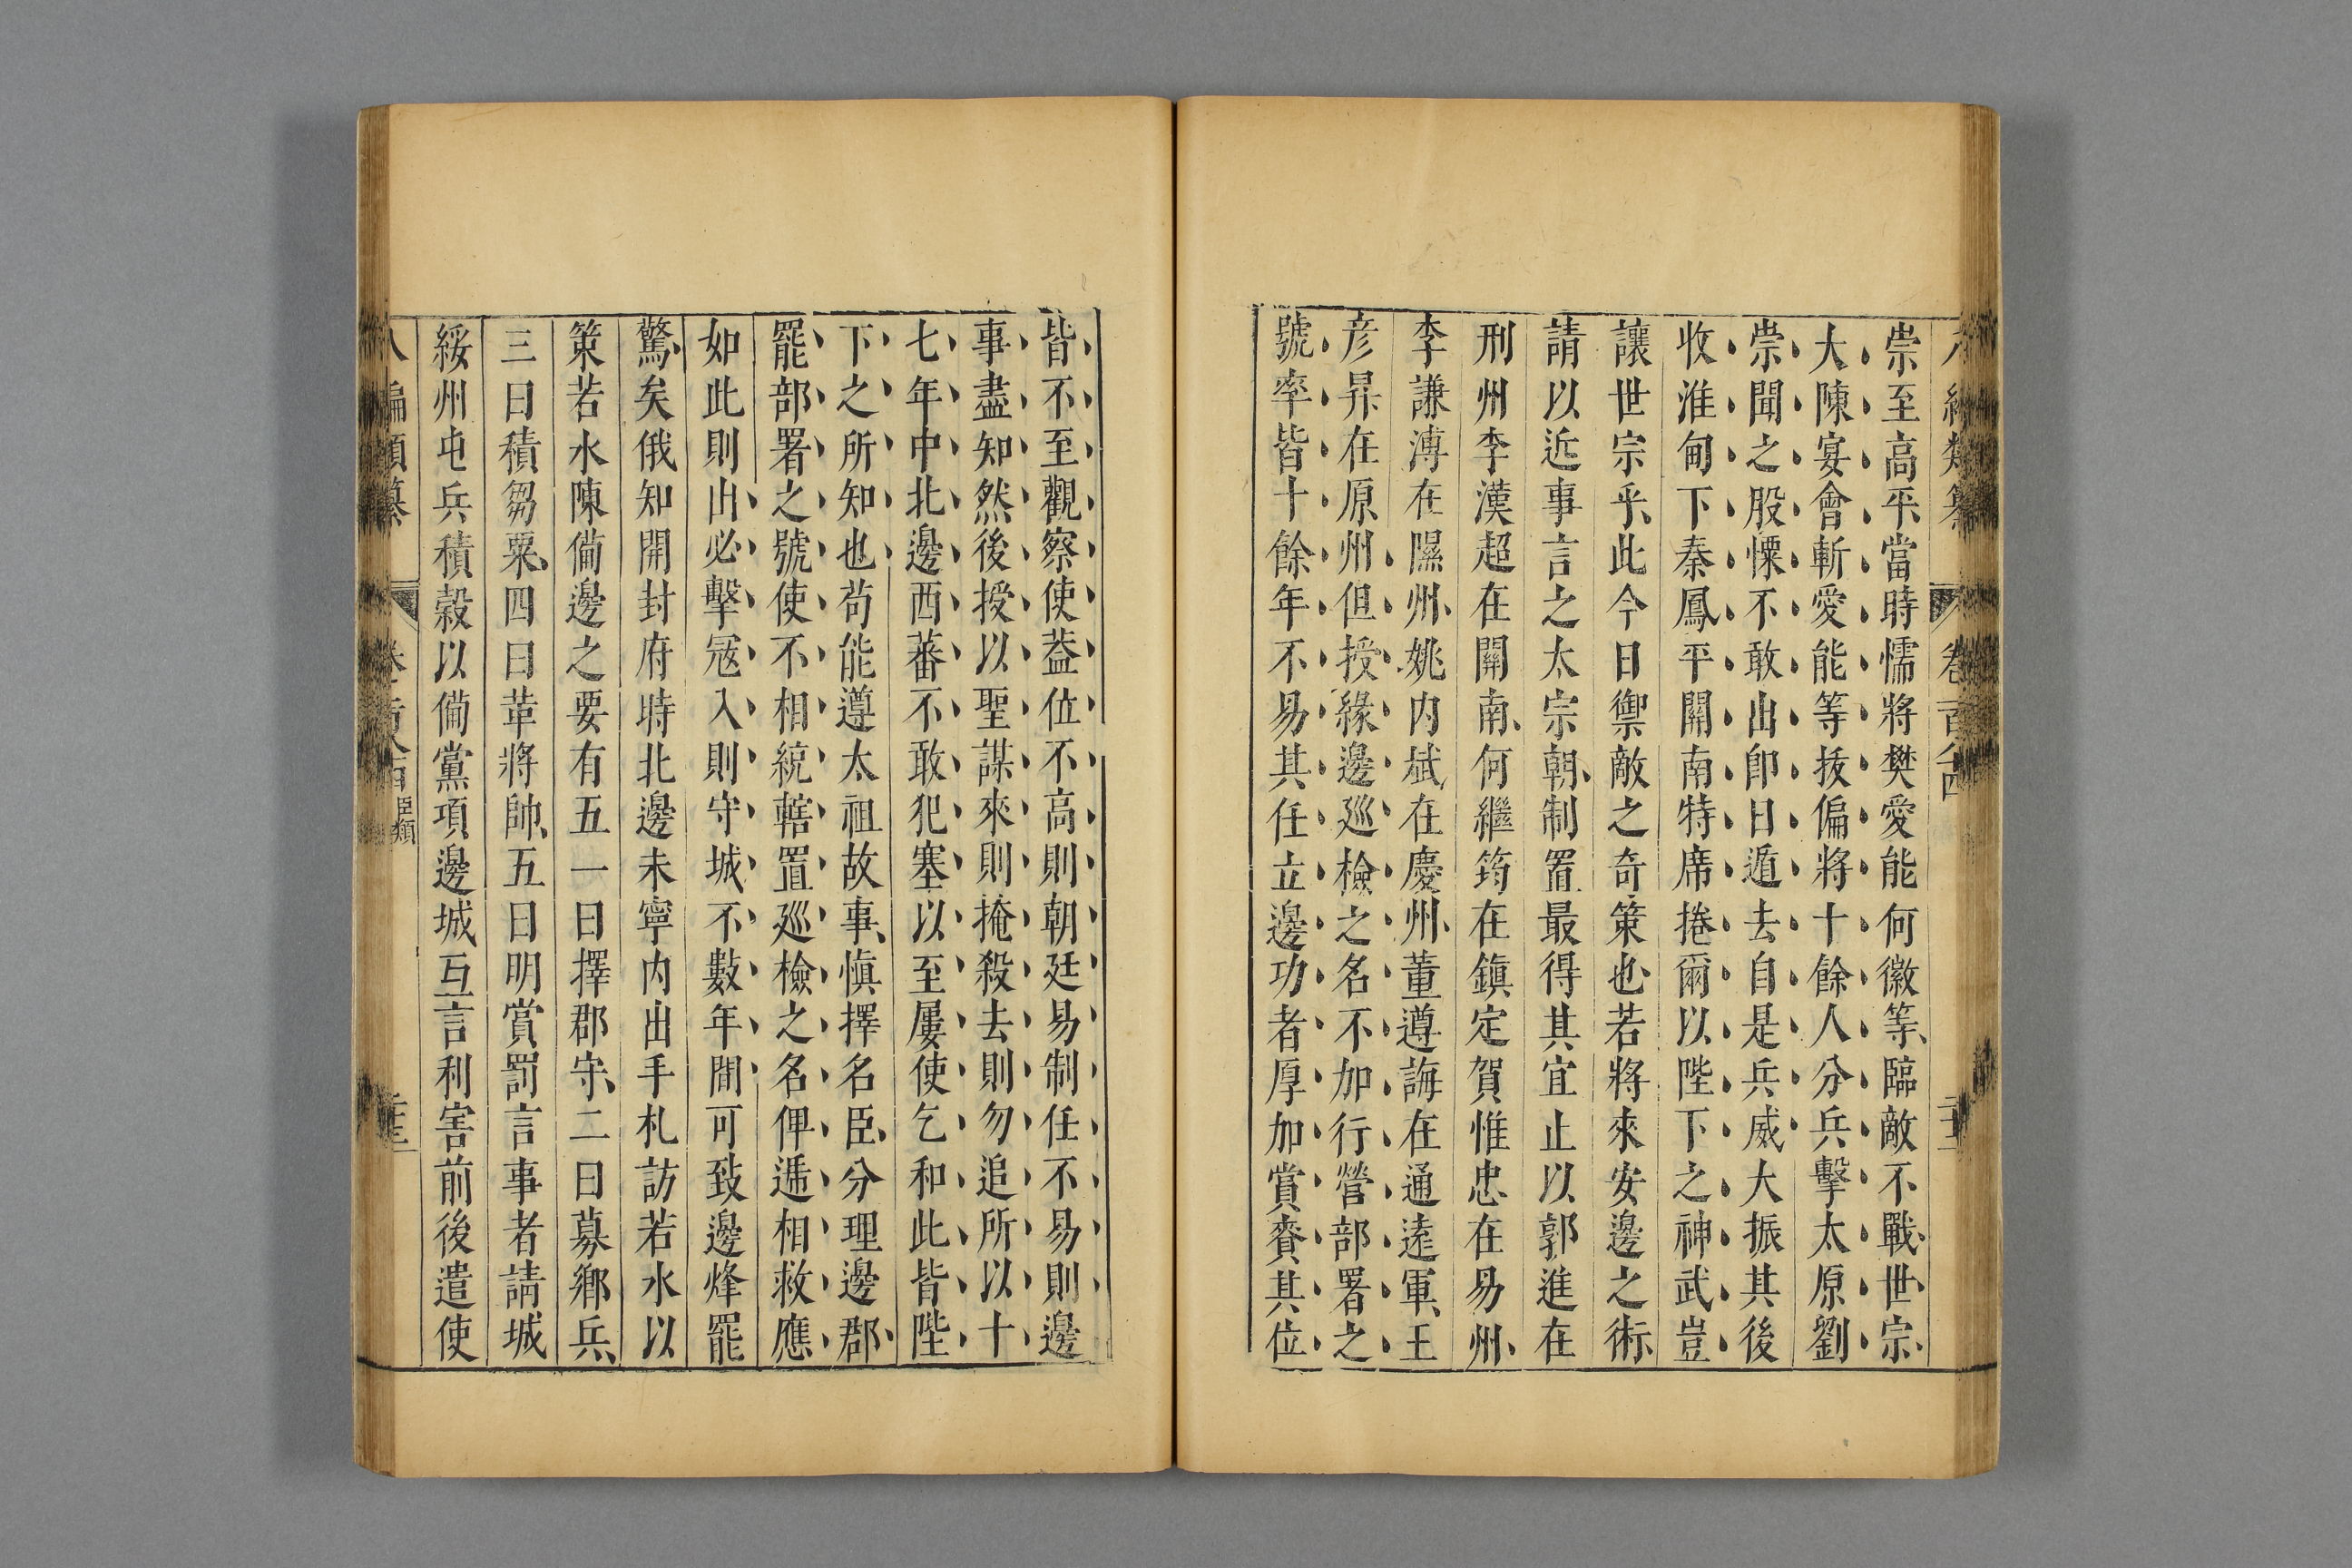 崇至高平當時懦將樊愛能何徽等臨敵不戰世宗
大陳宴會斬愛能等拔偏將十餘人分兵擊太原劉
崇聞之股慄不敢出卽日遁去自是兵威大振其後
收淮甸下秦鳳平關南特席捲爾以陛下之神武豈
讓世宗乎此今日禦敵之奇策也若將來安邊之術
請以近事言之太宗朝制置最得其宜止以郭進在
刑州李漢超在關南何繼筠在鎭定賀惟忠在易州
李謙溥在隰州姚内斌在慶州董遵誨在通遠軍王
彦昇在原州但授緣邊廵檢之名不加行營部署之
號率皆十餘年不易其任立邊功者厚加賞賚其位
皆不至觀察使葢位不高則朝廷易制任不易則邊
事盡知然後授以聖謀來則掩殺去則勿追所以十
七年中北邊西蕃不敢犯塞以至屢使乞和此皆陛
下之所知也苟能遵太祖故事愼擇名臣分理邊郡
罷部署之號使不相統轄置廵檢之名俾遞相救應
如此則出必擊㓂入則守城不數年間可致邊烽罷
驚矣俄知開封府時北邊未寧内出手札訪若水以
策若水陳僃邊之要有五一曰擇郡守二曰募鄉兵
三曰積芻粟四曰革將帥五曰明賞罰言事者請城
綏州屯兵積榖以僃黨項邊城互言利害前後遣使